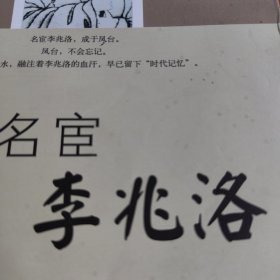 名宦李兆洛，成于凤台。
凤台，不会忘记。
水，融注着李兆洛的血汗，早已留下“时代记忆”。
名宦
李兆洛